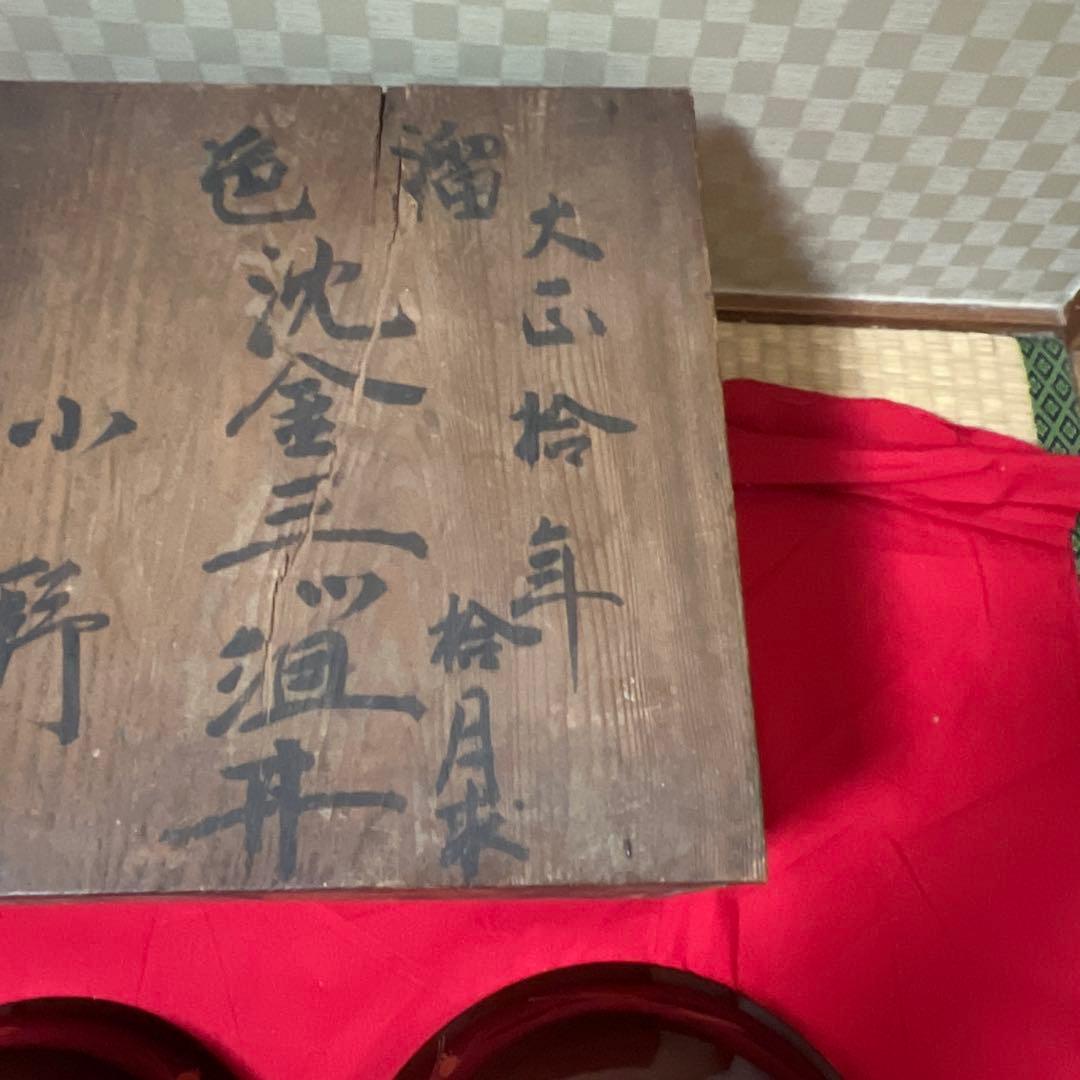 大正拾年
拾月求
溜色
沈金三ツ組丼
小野